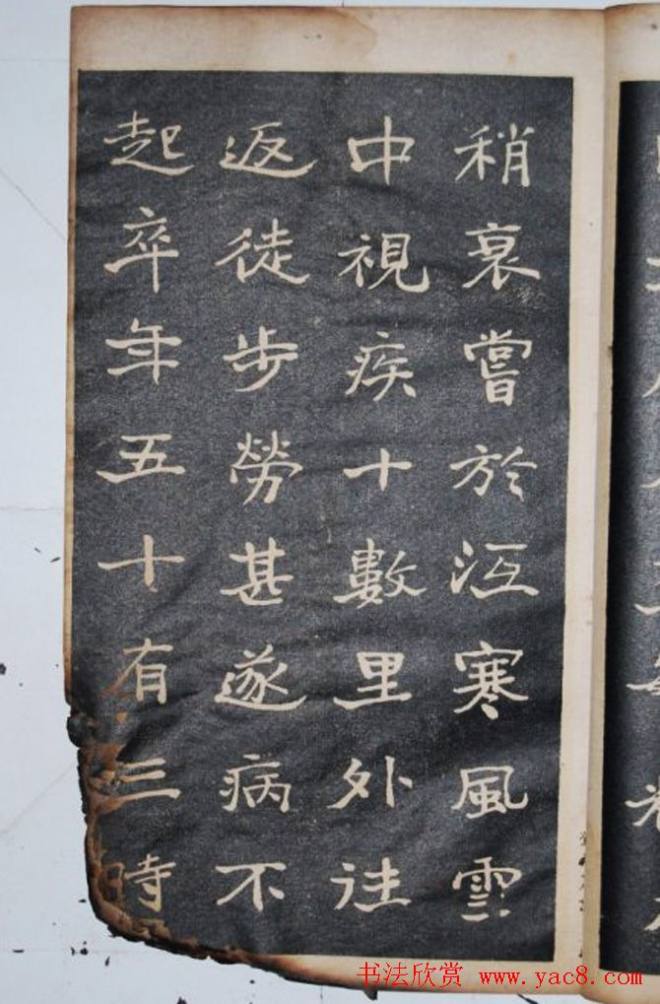 稍衰嘗於沍寒風雪
中視疾十數里外往
返徒步勞甚遂病不
起卒年五十有三時
书法欣赏 www.yac8.com